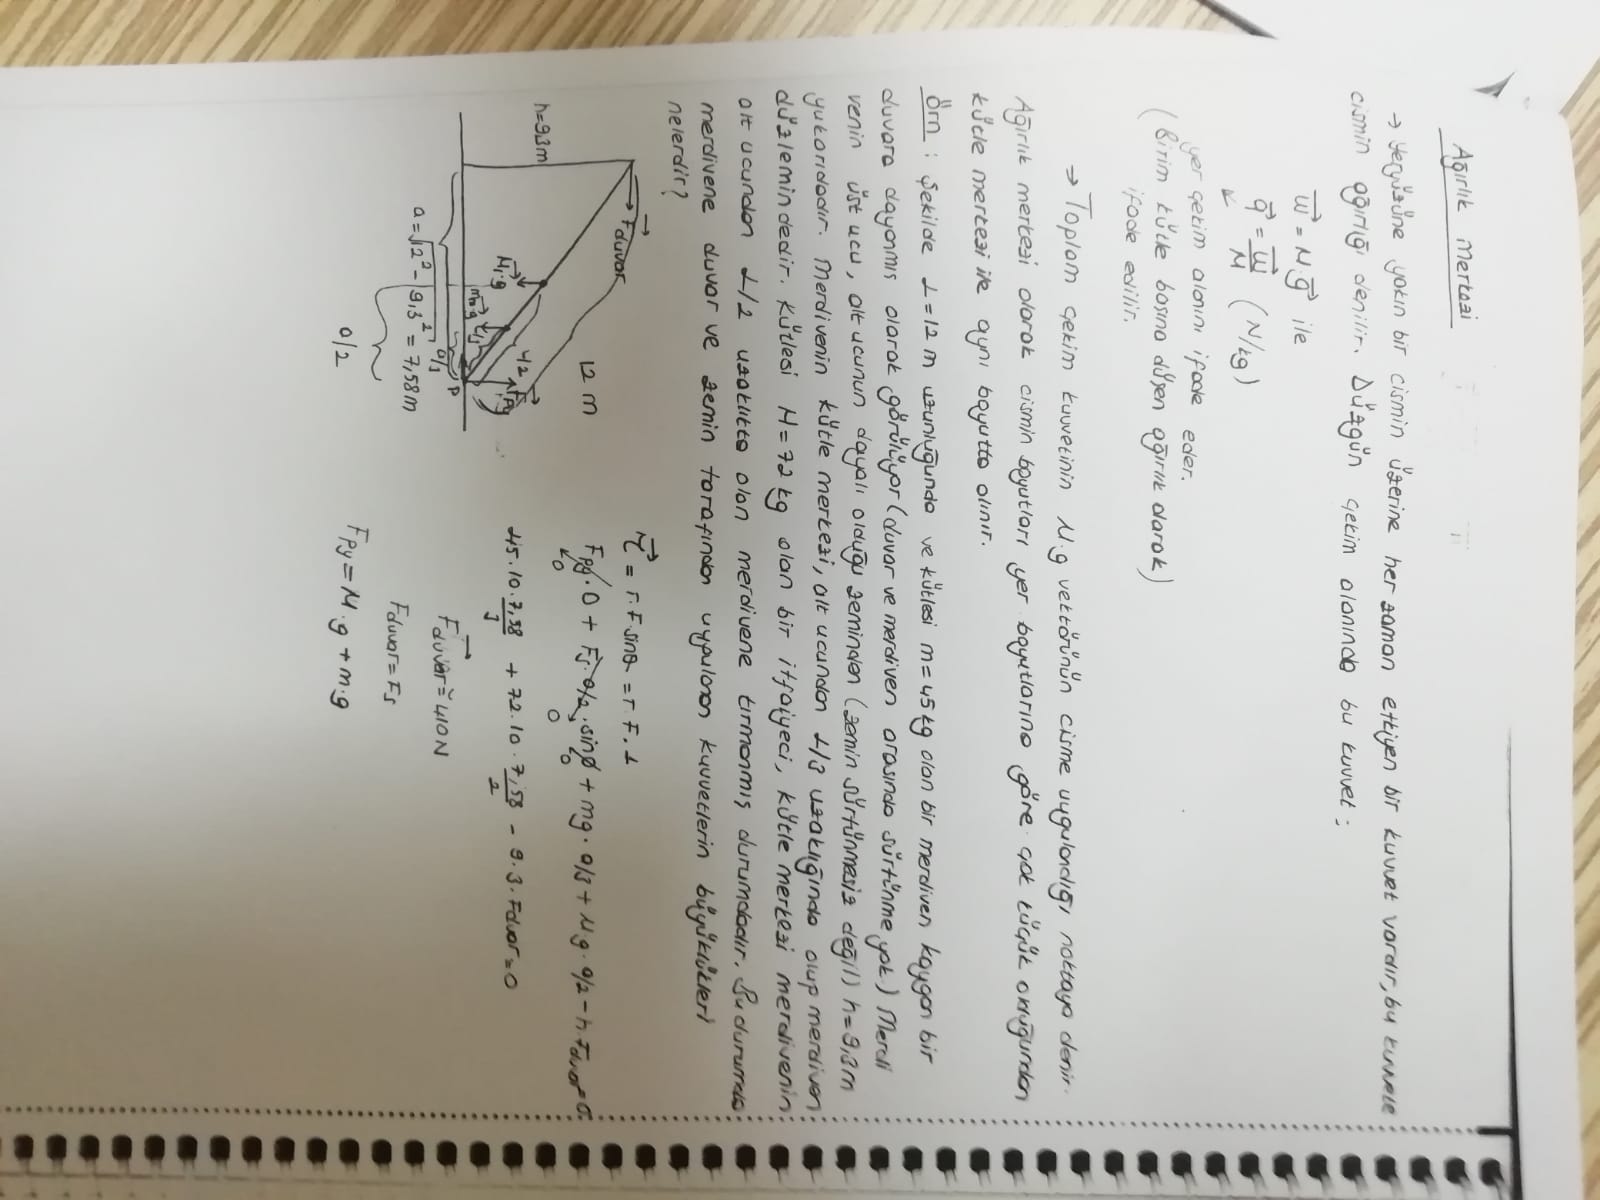 Ağırlık Merkezi
→ Yeryüzüne yakın bir cismin üzerine her zaman etkiyen bir kuvvet vardır, bu kuvvete
cismin ağırlığı denilir. Düzgün çekim alanında bu kuvvet ;
w = M.g ile
g = w/M (N/kg)
yer çekim alanını ifade eder.
(Birim kütle başına düşen ağırlık olarak)
ifade edilir.
→ Toplam çekim kuvvetinin M.g vektörünün cisme uygulandığı noktaya denir.
Ağırlık merkezi olarak cismin boyutları yer boyutlarına göre çok küçük olduğundan
kütle merkezi ile aynı boyutta alınır.
Örn : Şekilde L=12 m uzunluğunda ve kütlesi m=45 kg olan bir merdiven kaygan bir
duvara dayanmış olarak görülüyor (duvar ve merdiven arasında sürtünme yok.) Merdi
venin üst ucu, alt ucunun dayalı olduğu zeminden (zemin sürtünmesiz değil) h=9,3m
yukarıdadır. Merdivenin kütle merkezi, alt ucundan L/3 uzaklığında olup merdiven
düzlemindedir. Kütlesi M=72 kg olan bir itfaiyeci, kütle merkezi merdivenin
alt ucundan L/2 uzaklıkta olan merdivene tırmanmış durumdadır. Bu durumda
merdivene duvar ve zemin tarafından uygulanan kuvvetlerin büyüklükleri
nelerdir?
Fduvar
12 m
h=9.3m
L/2
Fpy
M.g
m.g
L/3
P
a/3
a=√12²-9,3² = 7,58m
a/2
τ = r.F.sinθ = r.F.⊥
Fpy.0 + Fs.a/2.sin0 + mg.a/3 + M.g.a/2 - h.Fduvar=0
0 0 0
45.10.7,58/3 + 72.10.7,58/2 - 9.3.Fduvar=0
Fduvar≅410N
Fduvar=Fs
Fpy=M.g+m.g